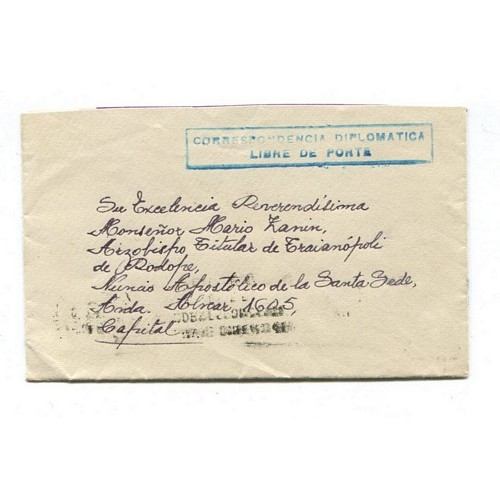 CORRESPONDENCIA DIPLOMATICA
LIBRE DE PORTE
Su Excelencia Reverendísima
Monseñor Mario Zanin,
Arzobispo Titular de Traianópoli
de Rodope,
Nuncio Apostólico de la Santa Sede,
Avda. Alvear 1605,
Capital